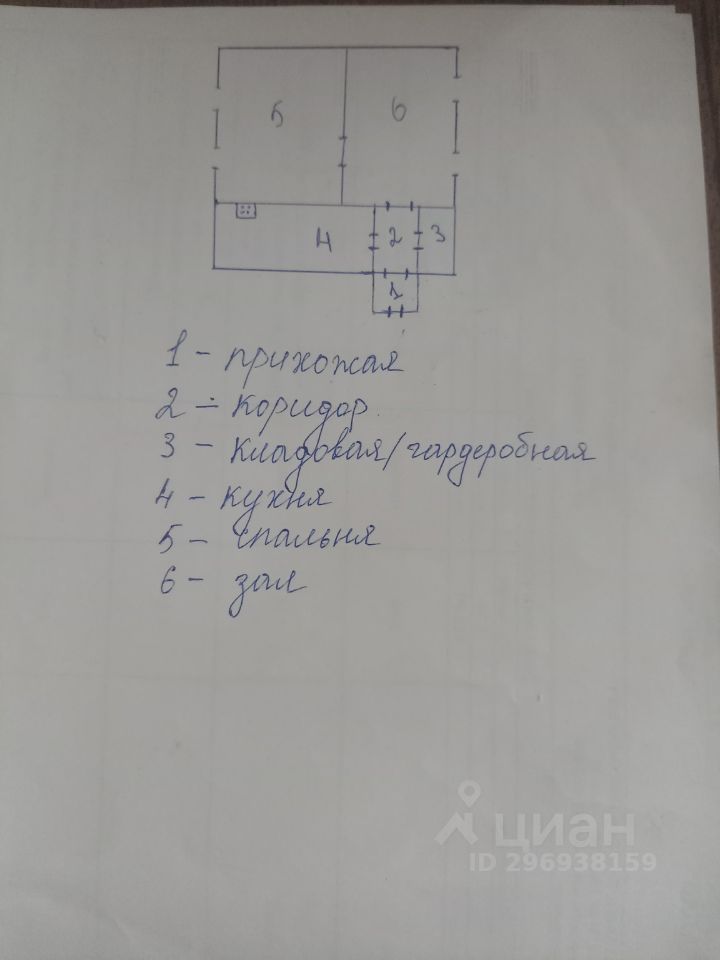 5 6
4 2 3
1
1 - прихожая
2 - коридор
3 - кладовая/гардеробная
4 - кухня
5 - спальня
6 - зал
циан
ID 296938159